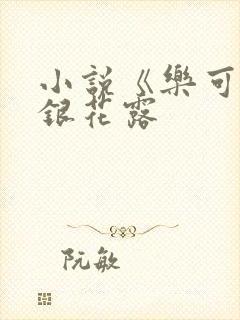 小説《樂可
銀花露
阮敏